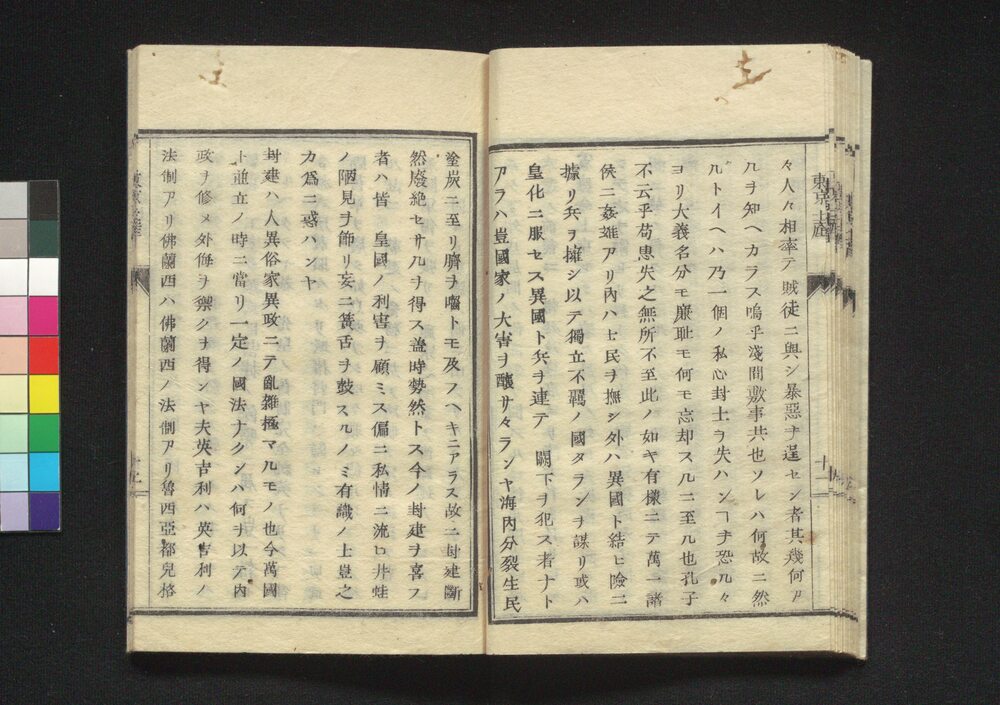 東京土產
々人々相率テ賊徒ニ與シ暴惡ヲ逞セン者其幾何ア
ルヲ知ヘカラス嗚乎淺間敷事共也ソレハ何故ニ然
ルトイヘハ乃一個ノ私心封土ヲ失ハンヿヲ恐ルヽ
ヨリ大義名分モ廉耻モ何モ忘却スルニ至ル也孔子
不云乎苟患失之無所不至此ノ如キ有樣ニテ萬一諸
侯ニ姦雄アリ內ハ士民ヲ撫シ外ハ異國ト結ヒ險ニ
據リ兵ヲ擁シ以テ獨立不羈ノ國タランヲ謀リ或ハ
皇化ニ服セス異國ト兵ヲ連テ 闕下ヲ犯ス者ナト
アラハ豈國家ノ大害ヲ釀サヽランヤ海內分裂生民
塗炭ニ至リ臍ヲ嚙トモ及フヘキニアラス故ニ封建斷
然廢絶セサルヲ得ス蓋時勢然トス今ノ封建ヲ喜フ
者ハ皆 皇國ノ利害ヲ顧ミス偏ニ私情ニ流ロ井蛙
ノ陋見ヲ飾リ妄ニ簧舌ヲ鼓スルノミ有識ノ士豈之
カ爲ニ惑ハンヤ
封建ハ人異俗家異政ニテ亂雜極マルモノ也今萬國
ト並立ノ時ニ當リ一定ノ國法ナクンハ何ヲ以テ內
政ヲ修メ外侮ヲ禦クヲ得ンヤ夫英吉利ハ英吉利ノ
法制アリ佛蘭西ハ佛蘭西ノ法制アリ魯西亞都兒格